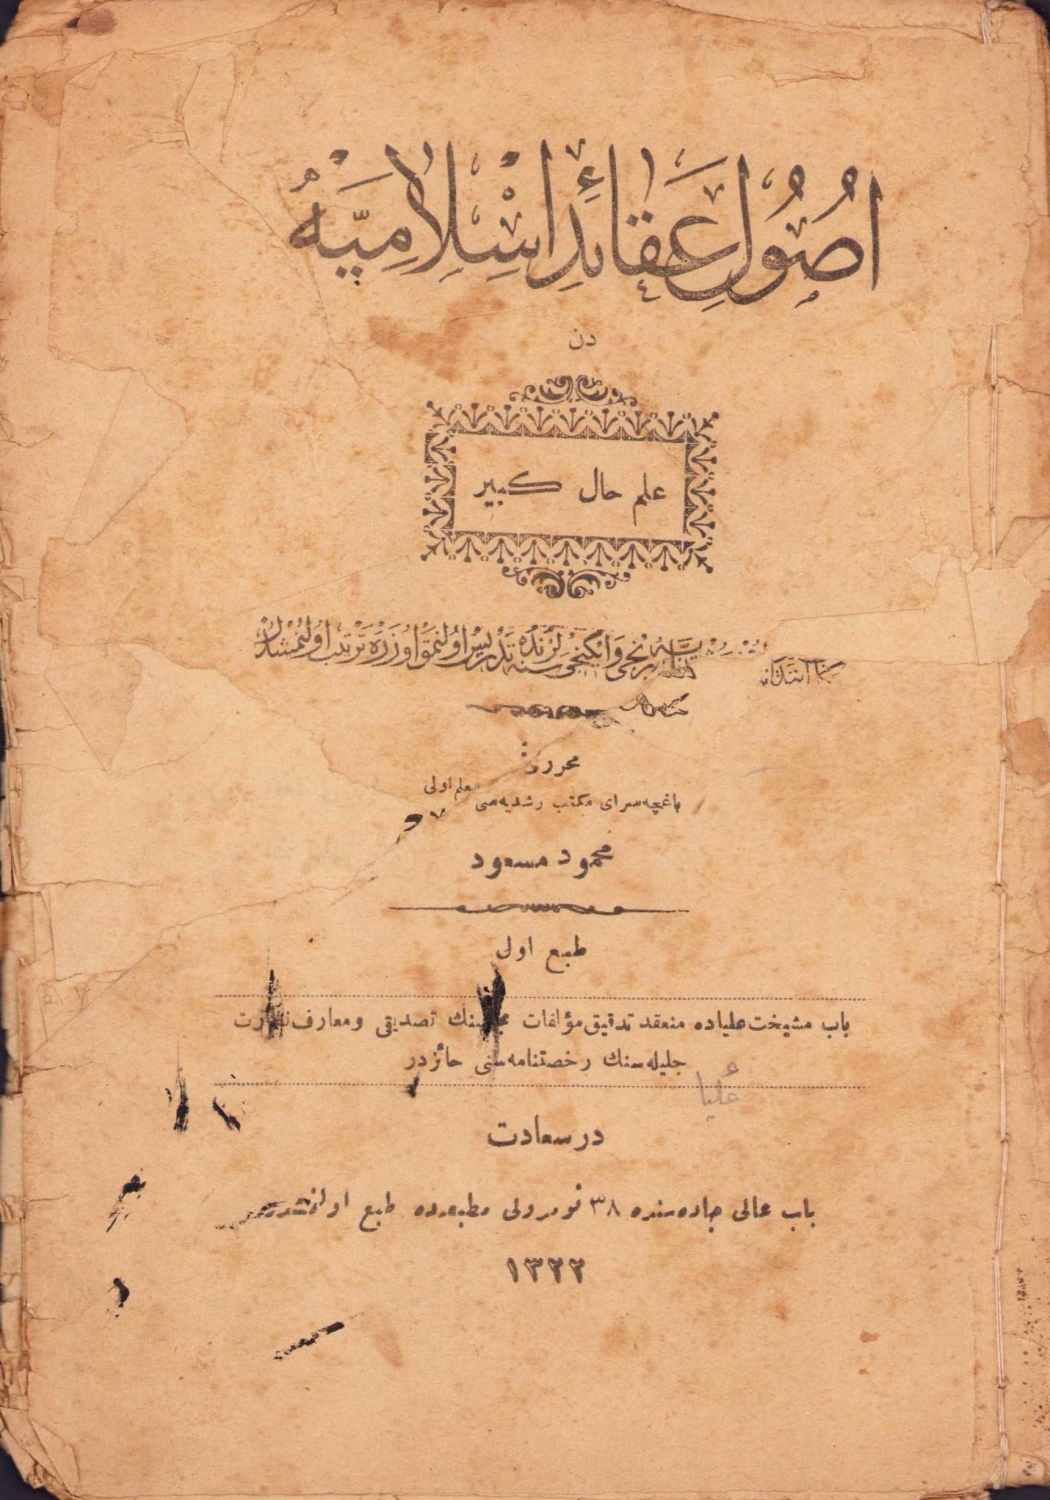 اُصُولِ عَقَائِدِ اِسْلَامِيَّهْ
دن
علم حال كبير
برنجى و ايكنجى سنه‌لرنده تدريس اولنمق اوزره ترتيب اولنمشدر
محررى
باغچه‌سراى مكتب رشديه‌سى معلم اولى
محمود مسعود
طبع اول
باب مشيخت علياده منعقد تدقيق مؤلفات تصديقى و معارف نظارت
جليله‌سنك رخصتنامه‌سنى حائزدر
عُليا
درسعادت
باب عالى جاده‌سنده ٣٨ نومرولى مطبعه‌ده طبع اولنمشدر
١٣٢٢